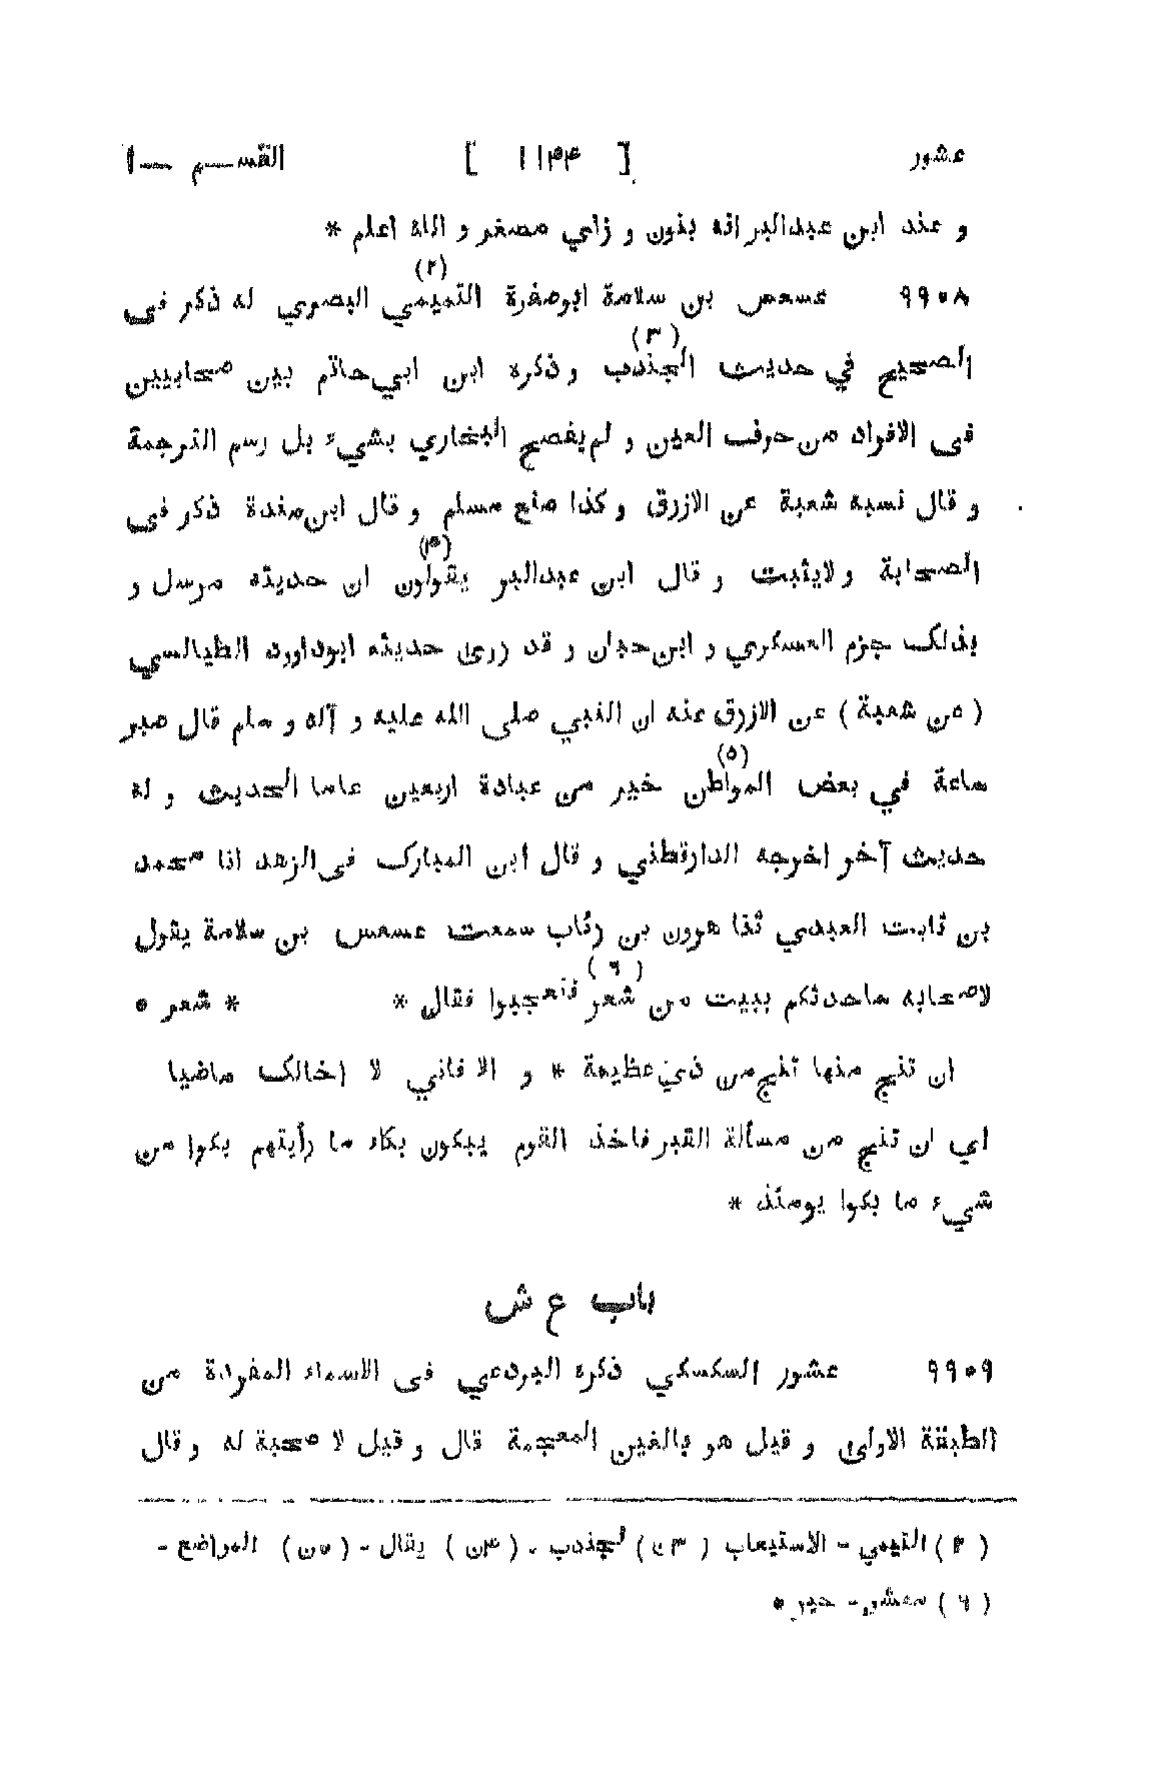 عشور [ ١١٤٤ ] القسم — ١
و عند ابن عبدالبر انه بنون و زاي مصغر و الله اعلم *
٩٩٠٨ عسعس بن سلامة ابوصفرة التميمي (٢) البصري له ذكر فى
الصحيح في حديث الجندب (٣) و ذكره ابن ابي حاتم بين صحابيين
فى الافراد من حرف العين و لم يفصح البخاري بشيء بل رسم الترجمة
و قال نسبه شعبة عن الازرق و كذا صنع مسلم و قال ابن مندة ذكر فى
الصحابة و لايثبت و قال ابن عبدالبر يقولون (٤) ان حديثه مرسل و
بذلك جزم العسكري و ابن حبان و قد روى حديثه ابوداوود الطيالسي
( عن شعبة ) عن الازرق عنه ان النبي صلى الله عليه و آله و سلم قال صبر
ساعة في بعض المواطن (٥) خير من عبادة اربعين عاما الحديث و له
حديث آخر اخرجه الدارقطني و قال ابن المبارك فى الزهد انا محمد
بن ثابت العبدي ثنا هرون بن رئاب سمعت عسعس بن سلامة يقول
لاصحابه ساحدثكم ببيت من شعر (٦) فتعجبوا فقال * * شعر *
ان تنج منها تنج من ذي عظيمة * و الا فاني لا إخالك ناجيا
اي ان تنج من مسألة القبر فاخذ القوم يبكون بكاء ما رأيتهم بكوا من
شيء ما بكوا يومئذ *
باب ع ش
٩٩٠٩ عشور السكسكي ذكره البردعي فى الاسماء المفردة من
الطبقة الاولى و قيل هو بالغين المعجمة قال و قيل لا صحبة له و قال
( ٢ ) التيمي - الاستيعاب ( ٣ن ) لجندب - ( ٤ن ) يقال - ( ٥ن ) المواضع -
( ٦ )